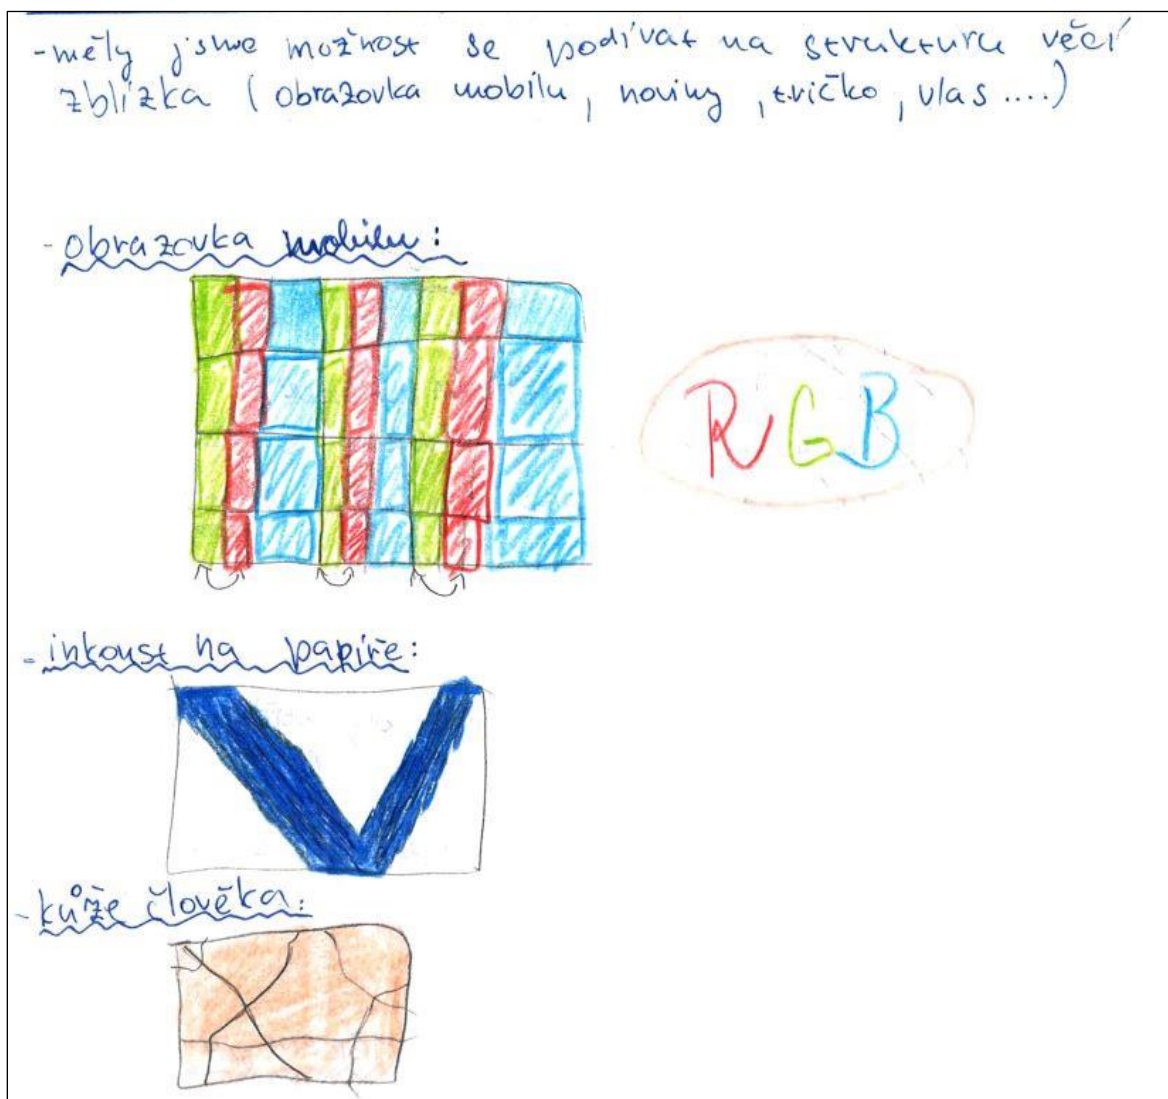 - měly jsme možnost se podívat na strukturu věcí
zblízka (obrazovka mobilu, noviny, tričko, vlas ....)
- obrazovka mobilu:
RGB
- inkoust na papíře:
- kůže člověka: